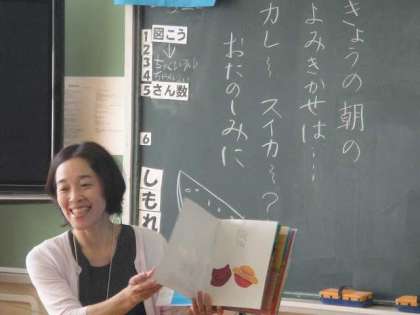 きょうの朝の
よみきかせは…
カレ〜 スイカ〜?
おたのしみに
1 図こう
2
3
4
5 さん数
6
しもれ